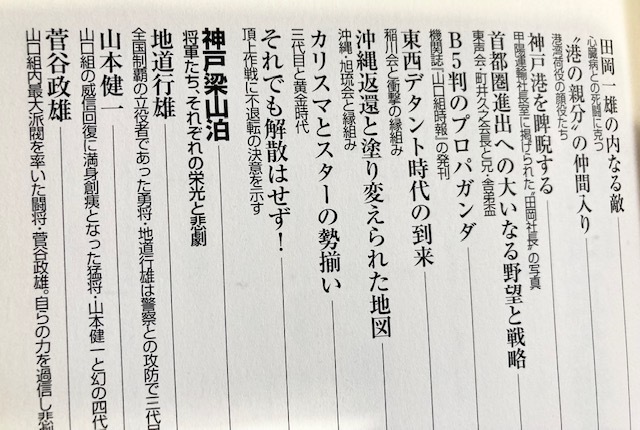 田岡一雄の内なる敵
心臓病との死闘に克つ
“港の親分”の仲間入り
港湾荷役の顔役たち
神戸港を睥睨する
甲陽運輸社長室に掲げられた“田岡社長”の写真
首都圏進出への大いなる野望と戦略
東声会・町井久之会長と兄・舎弟盃
B5判のプロパガンダ
機関誌『山口組時報』の発刊
東西デタント時代の到来
稲川会と衝撃の縁組み
沖縄返還と塗り変えられた地図
沖縄・旭琉会と縁組み
カリスマとスターの勢揃い
三代目と黄金時代
それでも解散はせず!
頂上作戦に不退転の決意を示す
神戸梁山泊
将軍たち、それぞれの栄光と悲劇
地道行雄
全国制覇の立役者であった勇将・地道行雄は警察との攻防で三代目
山本健一
山口組の威信回復に満身創痍となった猛将・山本健一と幻の四代
菅谷政雄
山口組内最大派閥を率いた闘将・菅谷政雄。自らの力を過信し悲劇